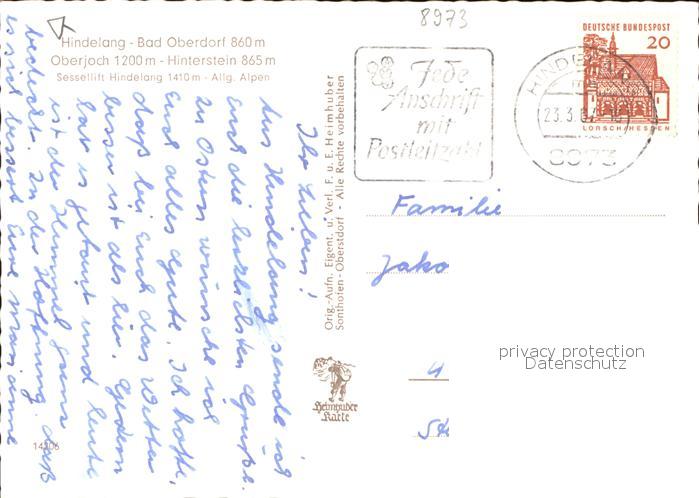 8973
Hindelang - Bad Oberdorf 860 m
Oberjoch 1200 m - Hinterstein 865 m
Sessellift Hindelang 1410 m - Allg. Alpen
Ihr Lieben!
Aus Hindelang sende ich
Euch die herzlichsten Grüße.
Zu Ostern wünsche ich
Euch alles gute. Ich hoffe,
daß bei Euch das Wetter
besser ist als hier. Gestern
hat es getaut und heute
ist der Himmel ganz
bedeckt. In der Hoffnung, daß
Eure Marianne
Orig.-Aufn. Eigent. u. Verl. F. u. E. Heimhuber
Sonthofen-Oberstdorf - Alle Rechte vorbehalten
Heimhuber
Karte
14206
Jede
Anschrift
mit
Postleitzahl
HINDEL
23.3.67
8973
DEUTSCHE BUNDESPOST
20
LORSCH/HESSEN
Familie
Jako
privacy protection
Datenschutz